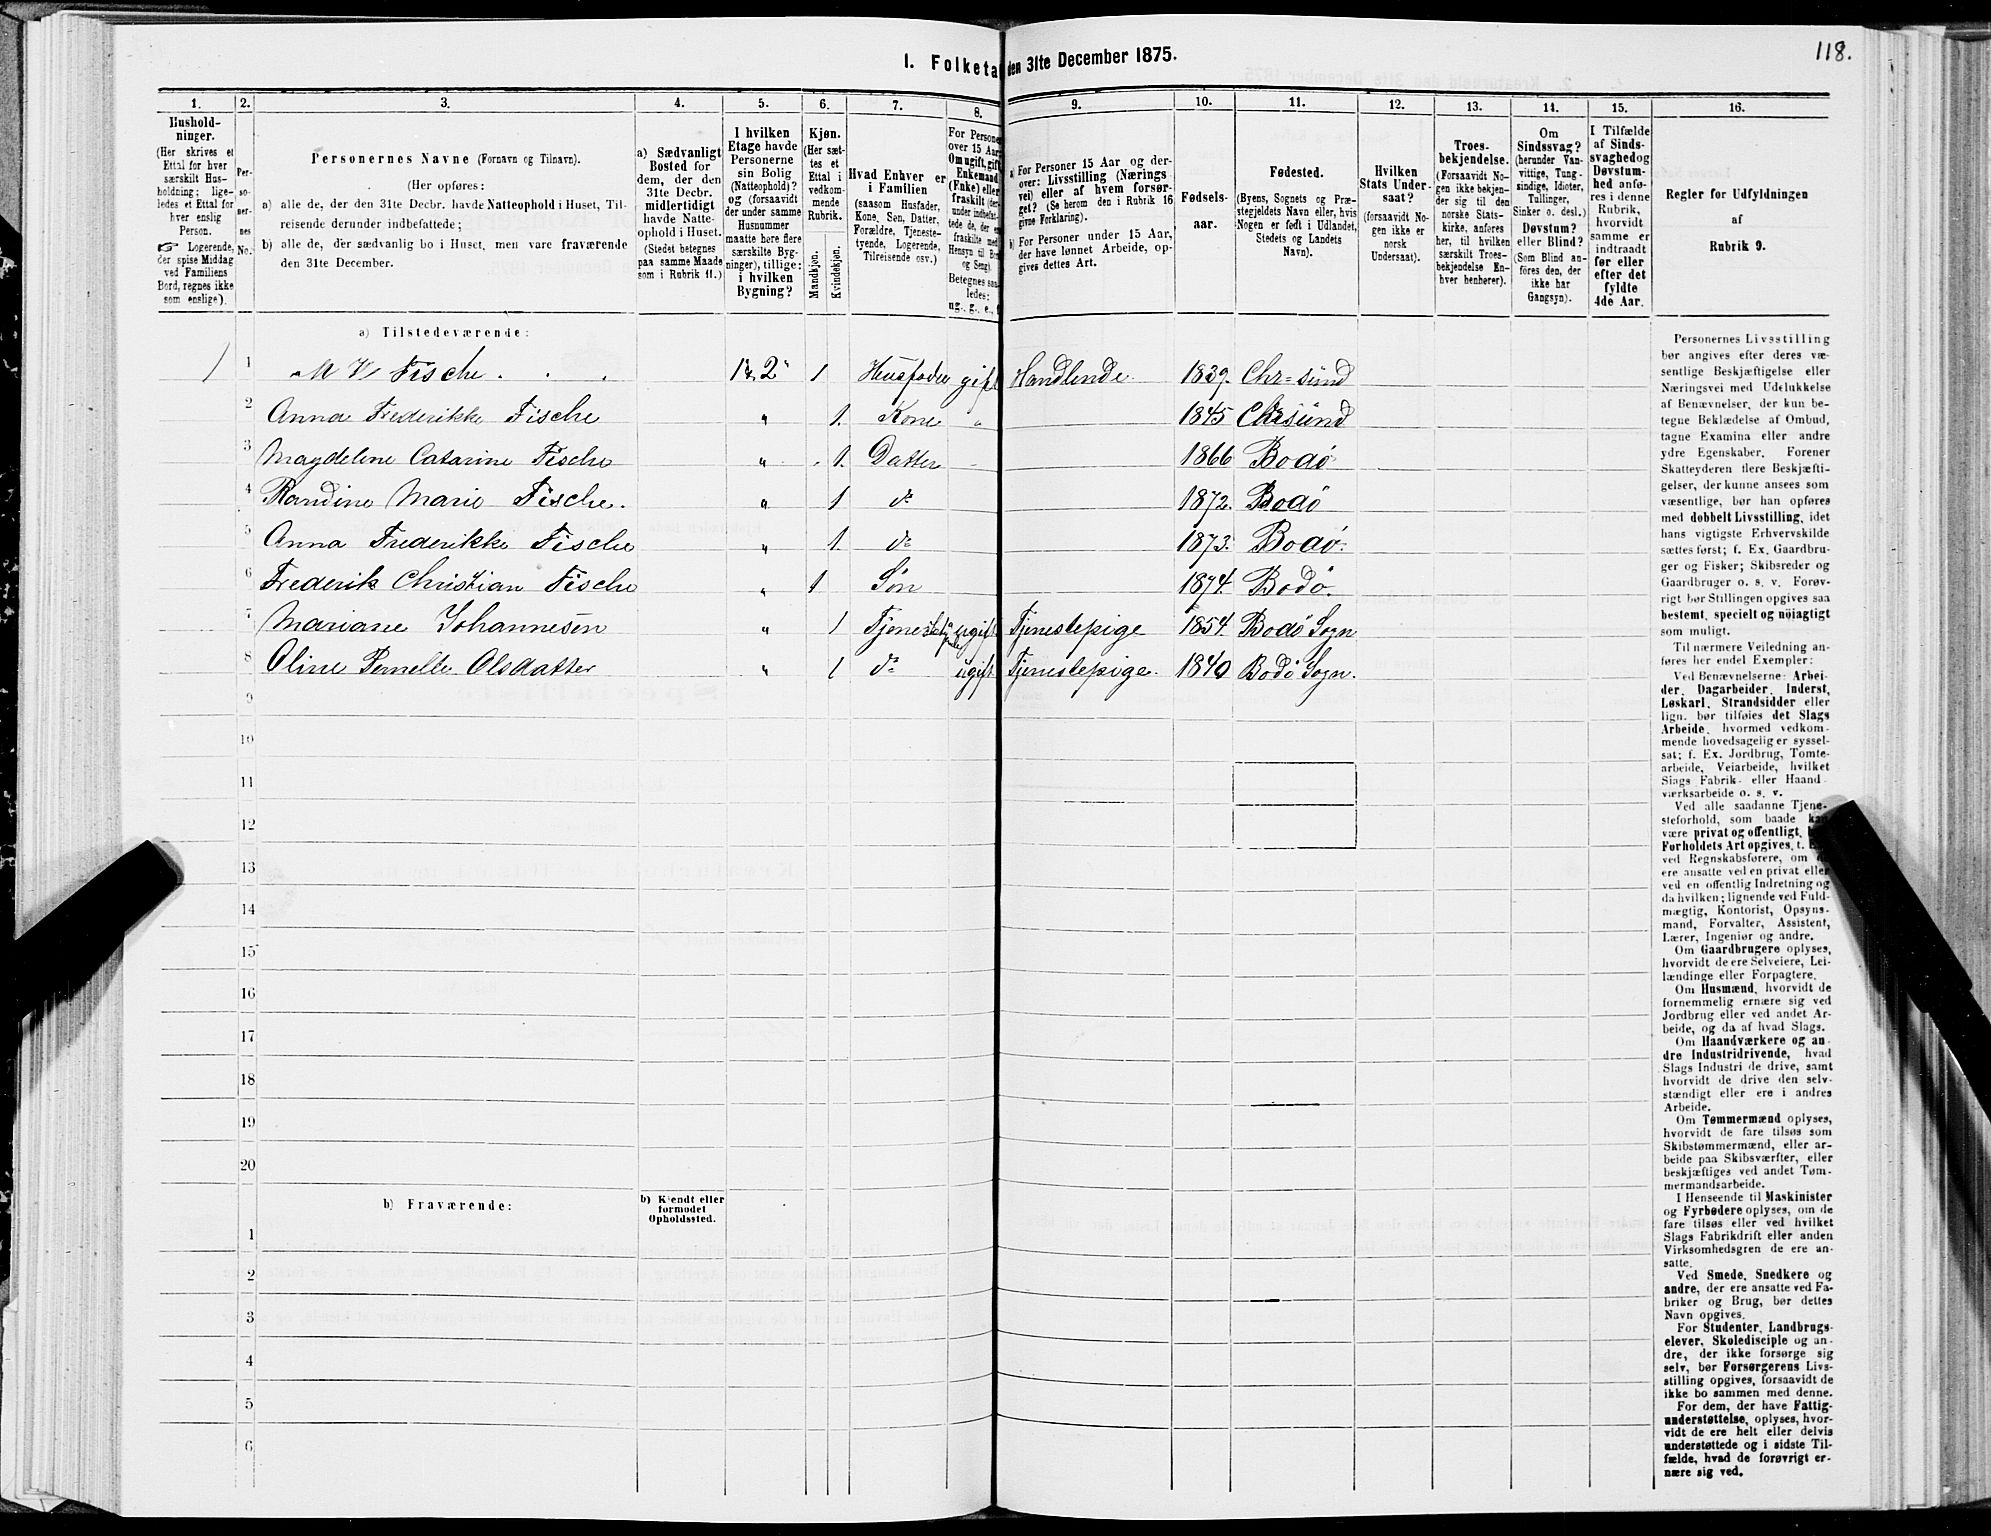 118.
I. Folketa den 31te December 1875.
1. 2. 3. 4. 5. 6. 7. 8. 9. 10. 11. 12. 13. 14. 15. 16.
Hushold-
ninger.
(Her skrives et
Ettal for hver
særskilt Hus-
holdning; lige-
ledes et Ettal for
hver enslig
Person.
☞ Logerende,
der spise Middag
ved Familiens
Bord, regnes ikke
som enslige).
Per-
so-
ner-
nes
No.
Personernes Navne (Fornavn og Tilnavn).
(Her opføres:
a) alle de, der den 31te Decbr. havde Natteophold i Huset, Til-
reisende derunder indbefattede;
b) alle de, der sædvanlig bo i Huset, men vare fraværende
den 31te December.
a) Sædvanligt
Bosted for
dem, der den
31te Decbr.
midlertidigt
havde Natte-
ophold i Huset.
(Stedet betegnes
paa samme Maade
som i Rubrik 11.)
I hvilken
Etage havde
Personerne
sin Bolig
(Natteophold)?
og (forsaavidt
der under samme
Husnummer
maatte høre flere
særskilte Byg-
ninger), tillige:
i hvilken
Bygning?
Kjøn.
(Her sæt-
tes et
Ettal i
vedkom-
mende
Rubrik.
Mandkjøn.
Kvindekjøn.
Hvad Enhver er
i Familien
(saasom Husfader,
Kone, Søn, Datter,
Forældre, Tjeneste-
tyende, Logerende,
Tilreisende osv.)
For Persone
over 15 Aar
Om ugift, gift
Enkemand
(Enke) eller
fraskilt (der-
under indbefat-
tede de, der er
fraskilte med
Hensyn til Bo
og Seng).
Betegnes saa-
ledes:
ug., g., e., f
a) For Personer 15 Aar og der-
over: Livsstilling (Nærings-
vei) eller af hvem forsør-
get? (Se herom den i Rubrik 16
givne Forklaring).
b) For Personer under 15 Aar,
der have lønnet Arbeide, op-
gives dettes Art.
Fødsels-
aar.
Fødested.
(Byens, Sognets og Præ-
stegjeldets Navn eller, hvis
Nogen er født i Udlandet,
Stedets og Landets
Navn).
Hvilken
Stats Under-
saat?
(forsaavidt No-
gen ikke er
norsk
Undersaat).
Troes-
bekjendelse.
(Forsaavidt No-
gen ikke bekjen-
der sig til den
norske Stats-
kirke, anføres
her, til hvilken
særskilt Troes-
bekjendelse En-
hver henhører).
Om
Sindssvag?
(herunder Van-
vittige, Tung-
sindige, Idioter,
Tullinger,
Sinker o. desl.)
Døvstum?
eller Blind?
(Som Blind an-
føres den, der
ikke har
Gangsyn).
I Tilfælde
af Sinds-
svaghed og
Døvstum-
hed anfø-
res i denne
Rubrik,
hvorvidt
samme er
indtraadt
før eller
efter det
fyldte
4de Aar.
Regler for Udfyldningen
af
Rubrik 9.
a) Tilstedeværende:
1 1 M W Fische 1 & 2 1 Husfader gift Handlende 1839. Chr=sund
2 Anna Frederikke Fische " 1. Kone " 1845 Chrsund
3 Magdelene Catarine Fische " 1. Datter 1866 Bodø
4 Randine Marie Fische. " 1 do 1872. Bodø
5 Anna Frederikke Fische " 1. do 1873. Bodø.
6 Frederik Christian Fische " 1 Søn 1874. Bodø.
7 Mariane Johannesen " 1 ugift Tjenestepige 1854. Bodø Sogn
8 Oline Pernelle Olsdatter " 1 do ugift Tjenestepige. 1840 Bodø Sogn.
9
10
11
12
13
14
15
16
17
18
19
20
b) Fraværende:
b) Kjendt eller
formodet
Opholdssted.
1
2
3
4
5
6
Personernes Livsstilling
bør angives efter deres væ-
sentlige Beskjæftigelse eller
Næringsvei med Udelukkelse
af Benævnelser, der kun be-
tegne Beklædelse af Ombud,
tagne Examina eller andre
ydre Egenskaber. Forener
Skatteyderen flere Beskjæfti-
gelser, der kunne ansees som
væsentlige, bør han opføres
med dobbelt Livsstilling, idet
hans vigtigste Erhvervskilde
sættes først; f. Ex. Gaardbru-
ger og Fisker; Skibsreder og
Gaardbruger o. s. v. Forøv-
rigt bør Stillingen opgives saa
bestemt, specielt og nøiagtigt
som muligt.
Til nærmere Veiledning an-
føres her endel Exempler:
Ved Benævnelserne: Arbei-
der, Dagarbeider, Inderst,
Løskarl, Strandsidder eller
lign. bør tilføies det Slags
Arbeide, hvormed vedkom-
mende hovedsagelig er syssel-
sat; f. Ex. Jordbrug, Tomte-
arbeide, Veiarbeide, hvilket
Slags Fabrik- eller Haand-
værksarbeide o. s. v.
Ved alle saadanne Tjene-
steforhold, som baade kan
være privat og offentligt,
Forholdets Art opgives, t.
ved Regnskabsførere, om
ere ansatte ved en privat eller
ved en offentlig Indretning og
da hvilken; lignende ved Fuld-
mægtig, Kontorist, Opsyns-
mand, Forvalter, Assistent,
Lærer, Ingeniør og andre.
Om Gaardbrugere oplyses,
hvorvidt de ere Selveiere, Lei-
lændinge eller Forpagtere.
Om Husmænd, hvorvidt de
fornemmelig ernære sig ved
Jordbrug eller ved andet Ar-
beide, og da af hvad Slags.
Om Haandværkere og an-
dre Industridrivende, hvad
Slags Industri de drive, samt
hvorvidt de drive den selv-
stændigt eller ere i andres
Arbeide.
Om Tømmermænd oplyses,
hvorvidt de fare tilsøs som
Skibstømmermænd, eller ar-
beide paa Skibsværfter, eller
beskjæftiges ved andet Tøm-
mermandsarbeide.
I Henseende til Maskinister
og Fyrbødere oplyses, om de
fare tilsøs eller ved hvilket
Slags Fabrikdrift eller anden
Virksomhedsgren de ere an-
satte.
Ved Smede, Snedkere og
andre, der ere ansatte ved Fa-
briker og Brug, bør dettes
Navn opgives.
For Studenter, Landbrugs-
elever, Skoledisciple og an-
dre, der ikke forsørge sig
selv, bør Forsørgerens Livs-
stilling opgives, forsaavidt de
ikke bo sammen med denne.
For dem, der have Fattig-
understøttelse, oplyses, hvor-
vidt de ere helt eller delvis
understøttede og i sidste Til-
fælde, hvad de forøvrigt er-
nære sig ved.